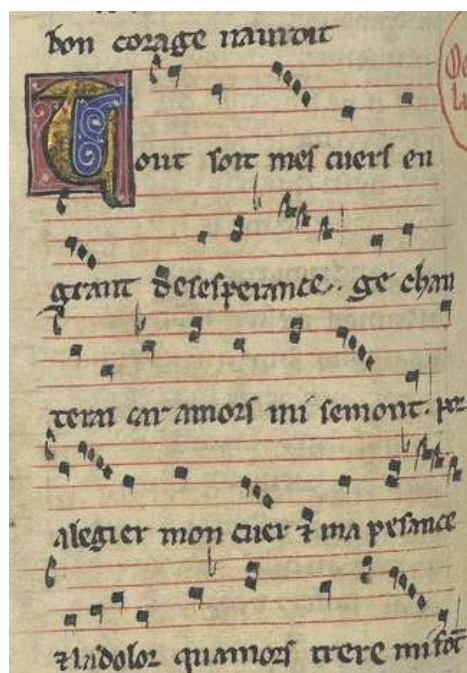 bon corage nauroit
Tout soit mes cuers en
grant desesperance. ge chan
terai car amors mi semont. por
alegier mon cuer ⁊ ma pesance
⁊ la dolor quamors trere mi font